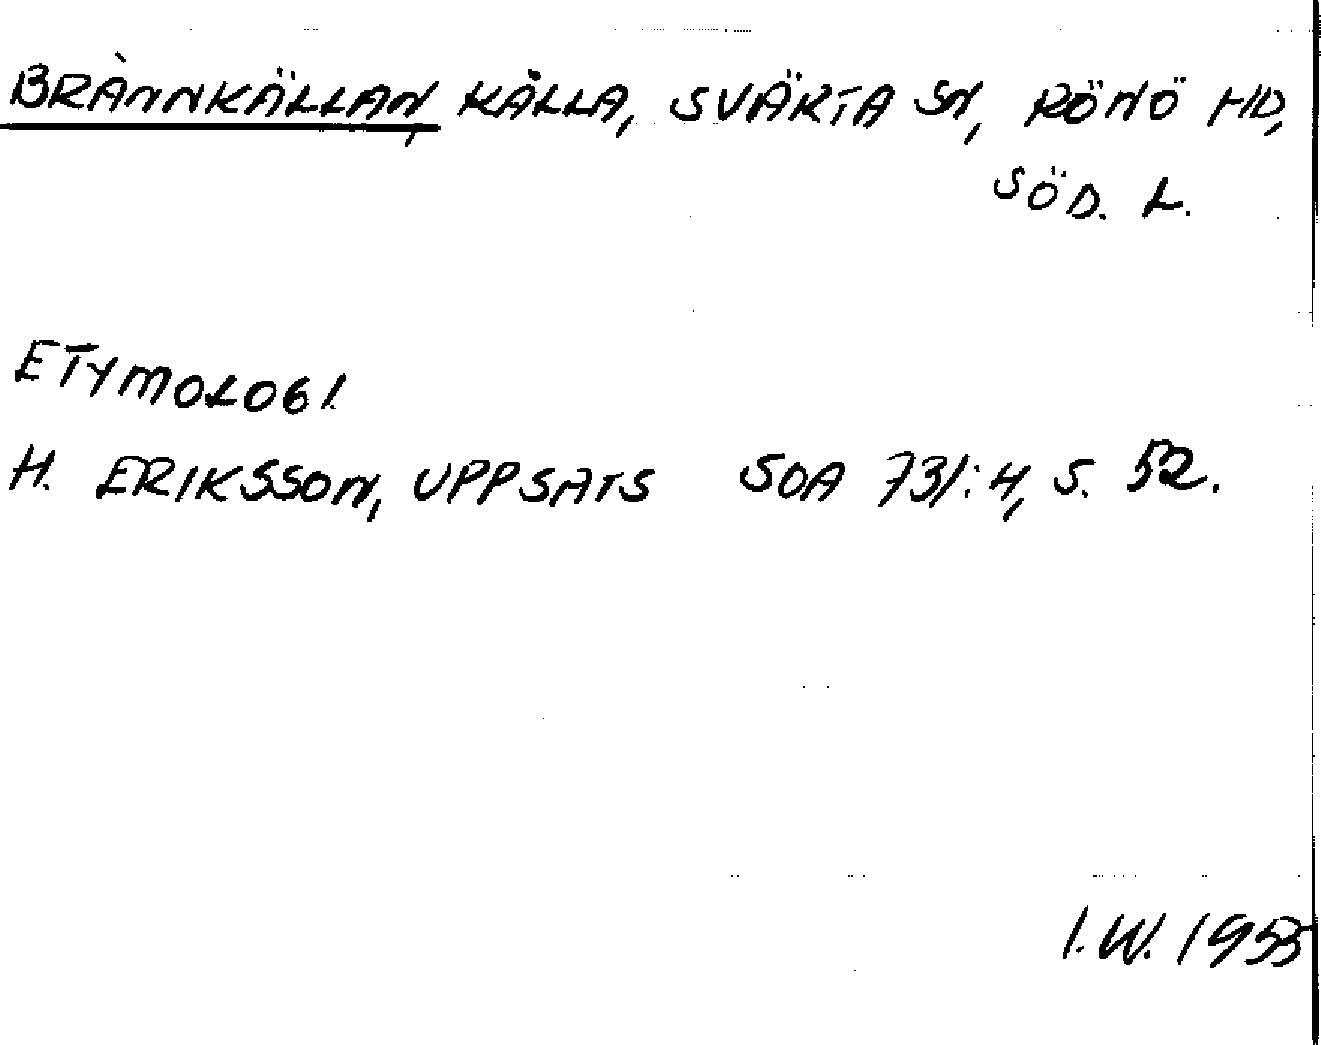 BRÄNNKÄLLAN, KÄLLA, SVÄRTA SN, RÖNÖ HD,
SÖD. L.
ETYMOLOGI.
H. ERIKSSON, UPPSATS SOA 731:4, S. 52.
I.W. 1955